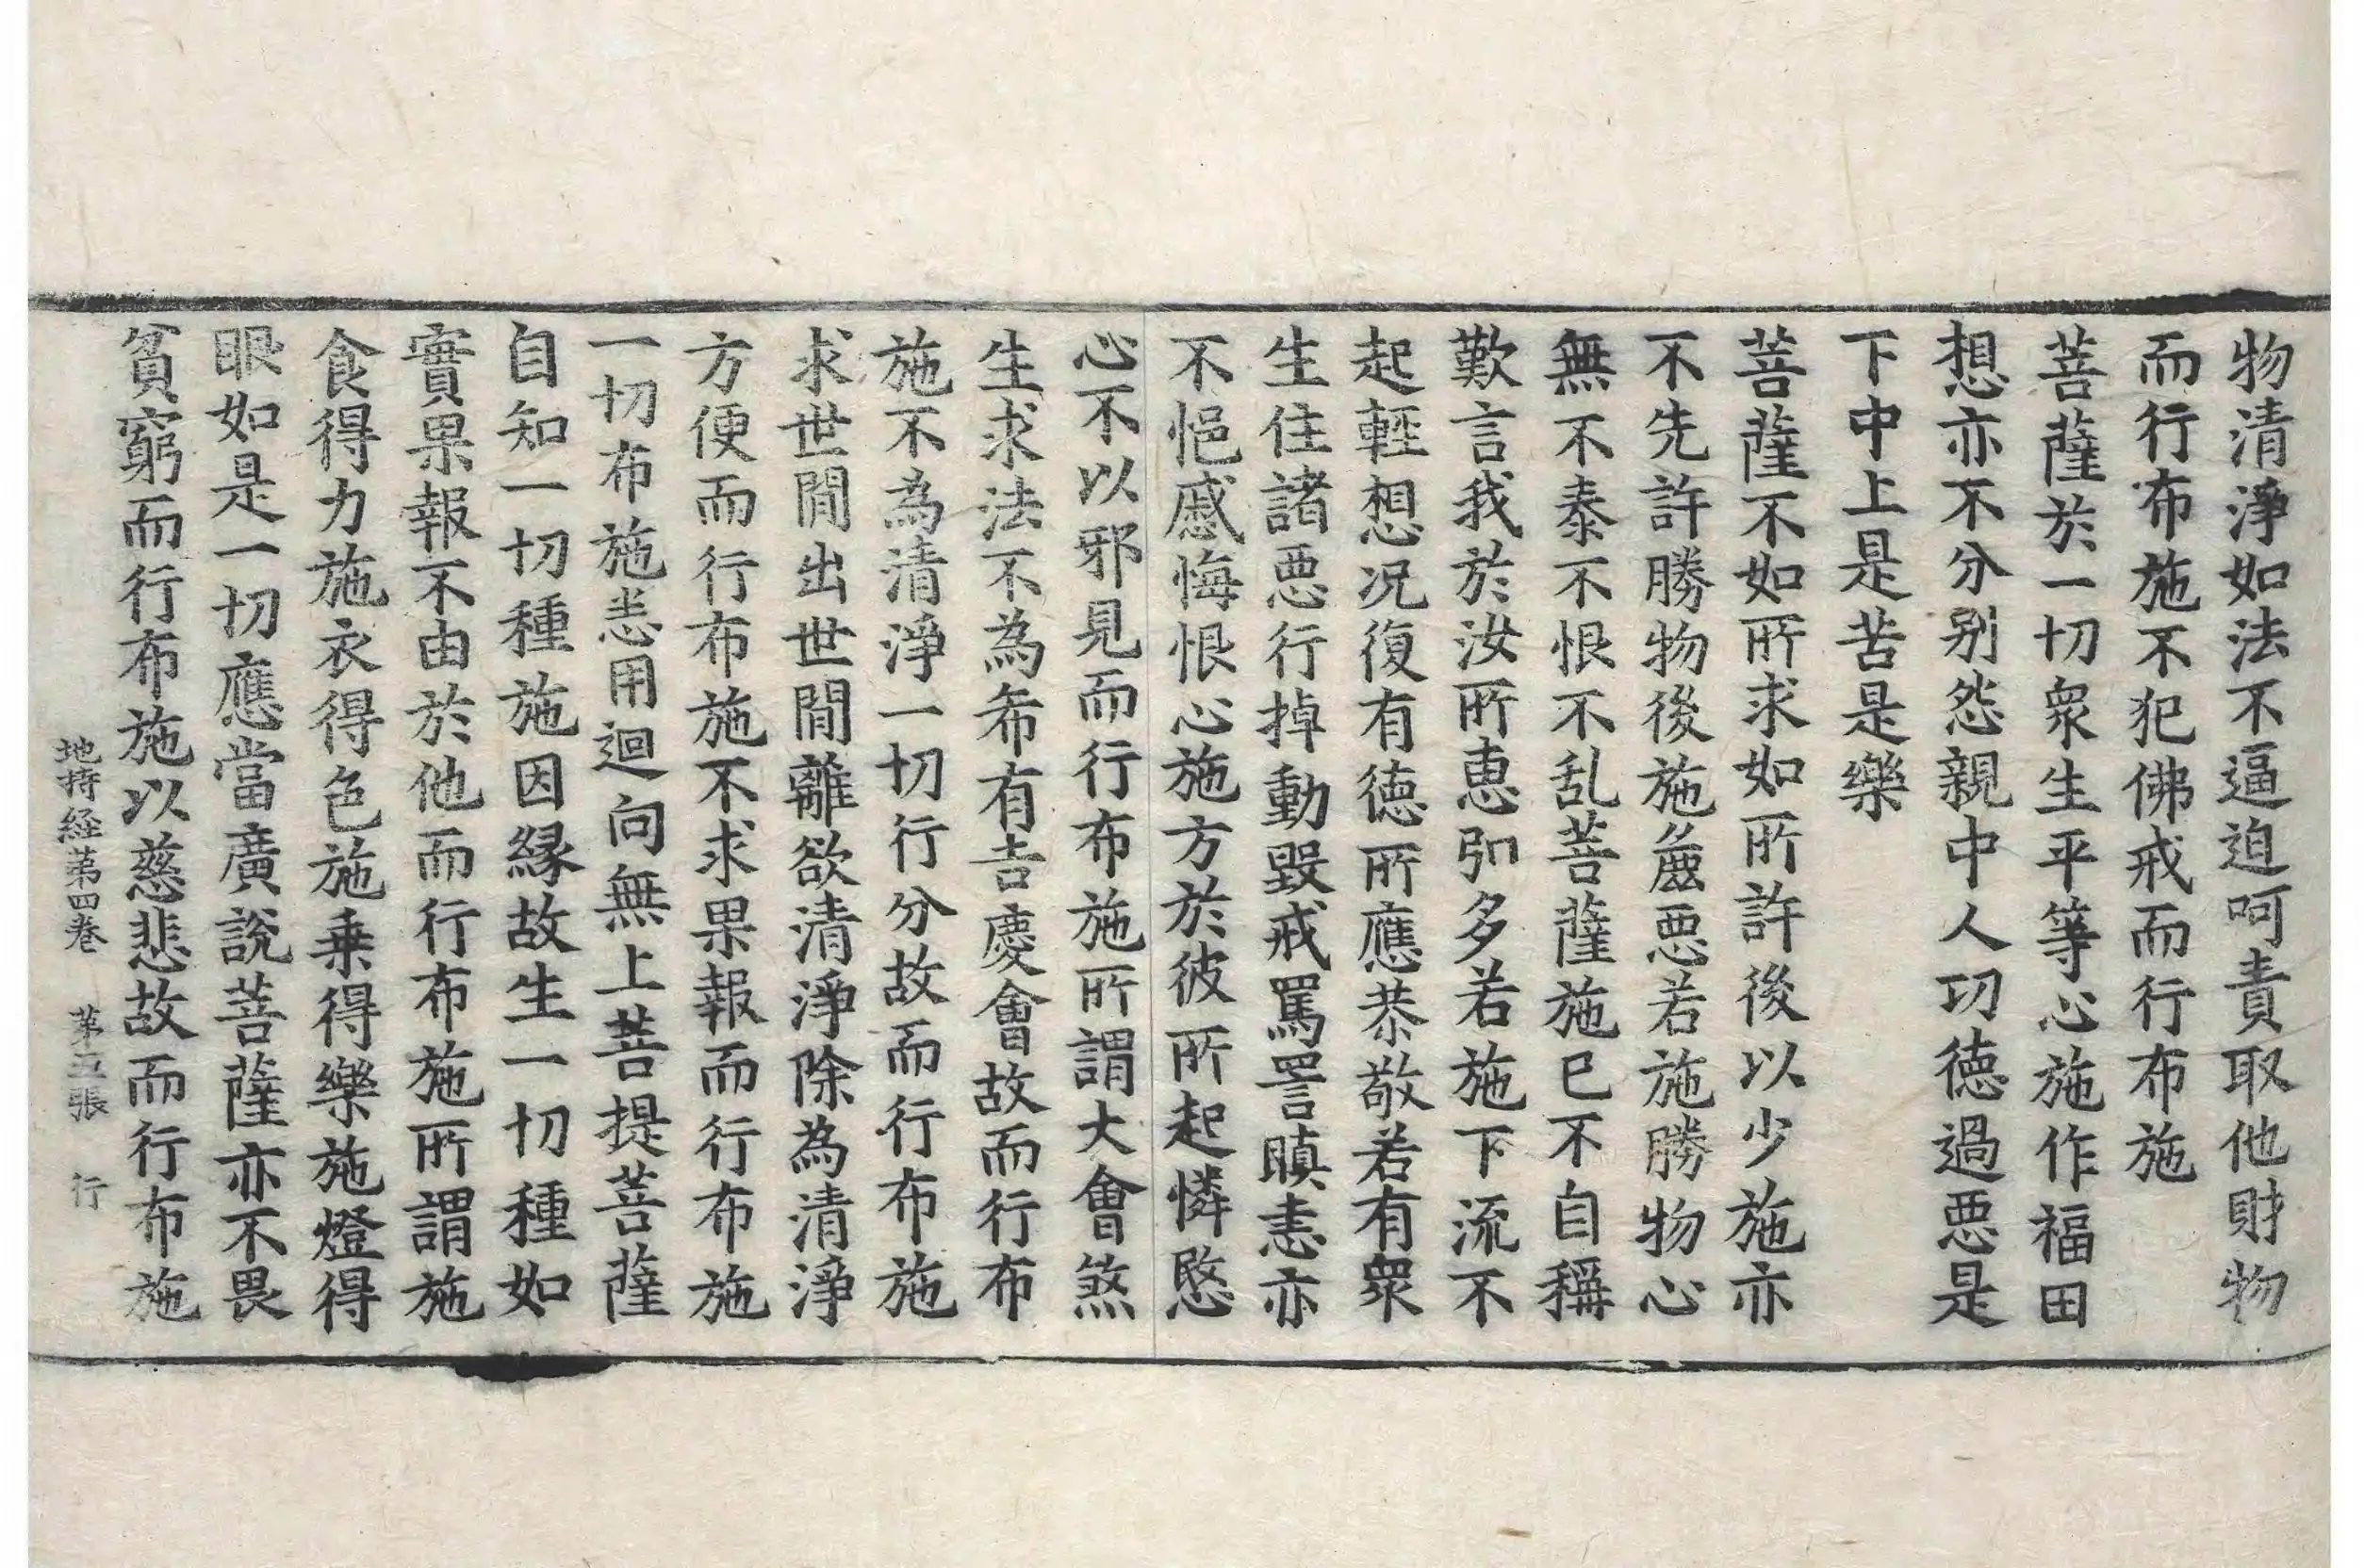 物清淨如法不逼迫呵責取他財物
而行布施不犯佛戒而行布施
菩薩於一切衆生平等心施作福田
想亦不分别怨親中人功徳過悪是
下中上是苦是樂
菩薩不如所求如所許後以少施亦
不先許勝物後施麁悪若施勝物心
無不泰不恨不乱菩薩施已不自稱
歎言我於汝所恵弘多若施下流不
起輕想况復有徳所應恭敬若有衆
生住諸悪行掉動毀戒罵詈瞋恚亦
不悒慼悔恨心施方於彼所起憐愍
心不以邪見而行布施所謂大會煞
生求法不為希有吉慶會故而行布
施不為清淨一切行分故而行布施
求世間出世間離欲清淨除為清淨
方便而行布施不求果報而行布施
一切布施悉用迴向無上菩提菩薩
自知一切種施因縁故生一切種如
實果報不由於他而行布施所謂施
食得力施衣得色施乗得樂施燈得
眼如是一切應當廣說菩薩亦不畏
貧窮而行布施以慈悲故而行布施
地持経第四巻　第五張　行